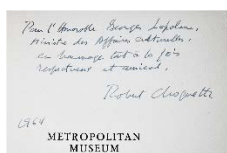 Pour l'Honorable Georges Lapalme,
ministre des Affaires culturelles,
en hommage tout à la fois
respectueux et amical,
Robert Choquette
1964
METROPOLITAN
MUSEUM